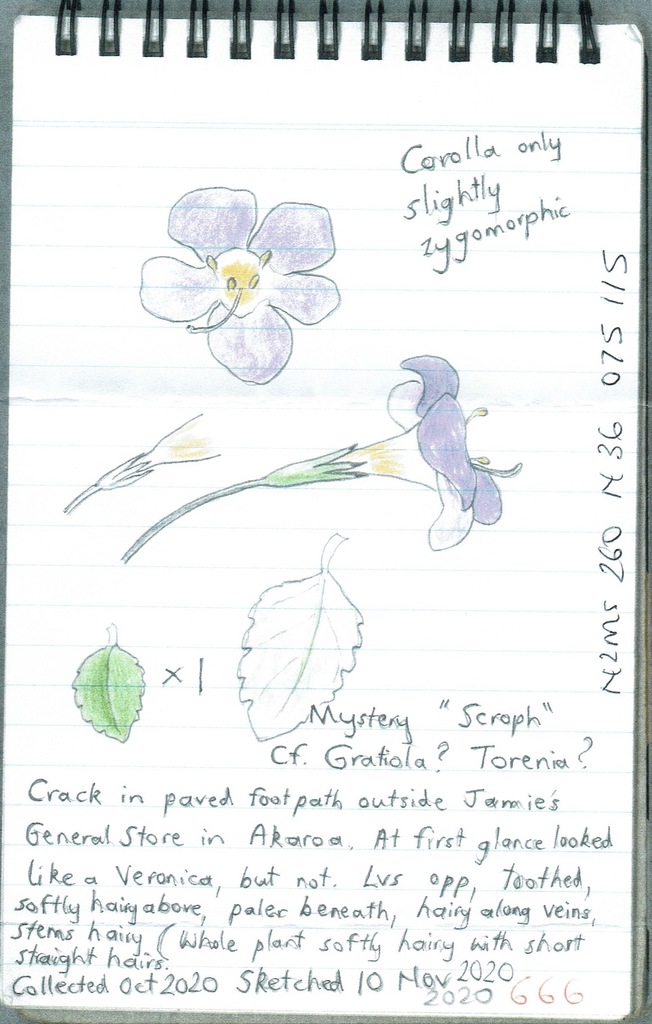 Corolla only
slightly
zygomorphic
NZMS 260 N36 075 115
x 1
Mystery "Scroph"
Cf. Gratiola? Torenia?
Crack in paved footpath outside Jamie's
General Store in Akaroa. At first glance looked
like a Veronica, but not. Lvs opp, toothed,
softly hairy above, paler beneath, hairy along veins,
stems hairy (Whole plant softly hairy with short
straight hairs.
Collected Oct 2020 Sketched 10 Nov 2020
2020 666